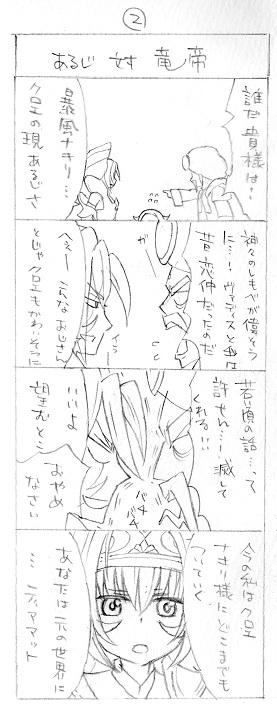 ②
あるじ 対 竜帝
誰だ貴様は…
暴風ナキリ…
クロエの現あるじさ
神々のしもべが偉そう
に…！ヴァディスと余は
昔恋仲だったのだ
ガ
へぇーこんなおじさん
とじゃクロエもかわいそうに
イラッ
若い頃の話…って
許せん…！滅して
くれる！！
いいよ
望むとこ
おやめ
なさい
バチ
バチ
今の私はクロエ
ナキリ様にどこまでも
ついていく
あなたは元の世界に
…ティアマット